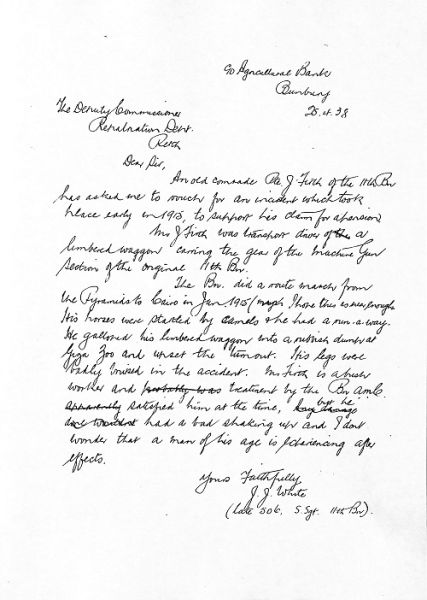 c/o Agricultural Bank
Bunbury
The Deputy Commissioner
Repatriation Dept.
Perth
Dear Sir,
An old comrade Pte J. Firth of the 11th Bn
has asked me to vouch for an incident which took
place early in 1915, to support his claim for a pension
Mr J Firth was transport driver of a
limbered waggon carring the gear of the Machine Gun
Section of the original 11th Bn.
The Bn. did a route march from
the Pyramids to Cairo in Jan 1915 / I hope this is near enough
His horses were started by camels & he had a run-a-way.
He galloped his limbered waggon into a rubbish dump at
Giza Zoo and upset the turnout. His legs were
badly bruised in the accident. Mr Firth is a bush
worker and probably was treatment by the Bn Amb.
apparently satisfied him at the time, but he
had a bad shaking up and I dont
wonder that a man of his age is experiencing after
effects.
Yours Faithfully
J. J. White
(Late 506, S. Sgt. 11th Bn).